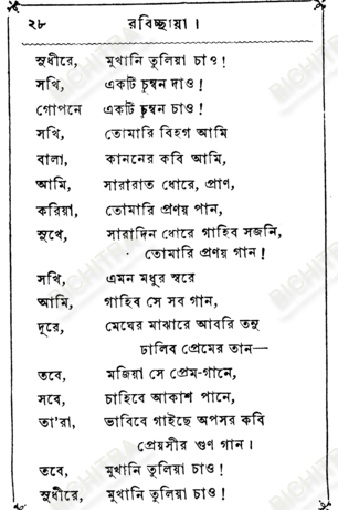 ২৮ রবিচ্ছায়া।
সুধীরে, মুখানি তুলিয়া চাও!
সখি, একটি চুম্বন দাও!
গোপনে একটি চুম্বন চাও!
সখি, তোমারি বিহগ আমি
বালা, কাননের কবি আমি,
আমি, সারারাত ধোরে, প্রাণ,
করিয়া, তোমারি প্রণয় পান,
সুখে, সারাদিন ধোরে গাহিব সজনি,
তোমারি প্রণয় গান!
সখি, এমন মধুর স্বরে
আমি, গাহিব সে সব গান,
দূরে, মেঘের মাঝারে আবরি তনু
ঢালিব প্রেমের তান—
তবে, মজিয়া সে প্রেম-গানে,
সবে, চাহিবে আকাশ পানে,
তা'রা, ভাবিবে গাইছে অপসর কবি
প্রেয়সীর গুণ গান।
তবে, মুখানি তুলিয়া চাও!
সুধীরে, মুখানি তুলিয়া চাও!
BICHITRA